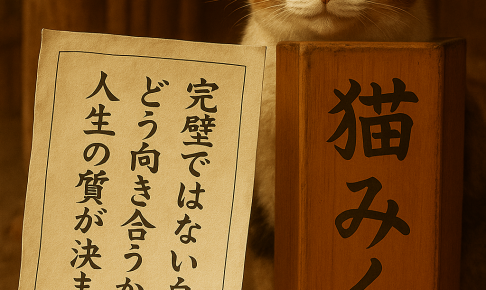 完璧ではない
どう向き合うか
人生の質が決ま
猫み